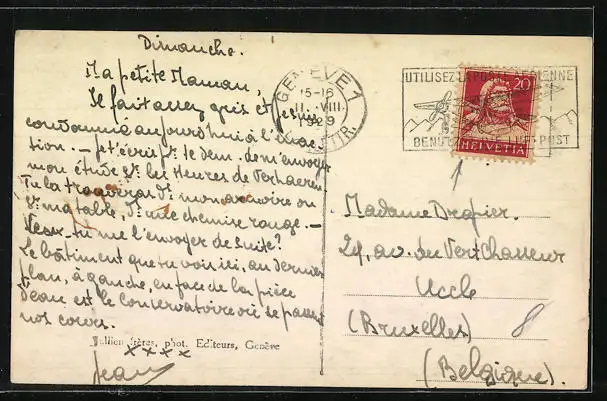 Dimanche.
Ma petite Maman,
Il fait assez gris et je suis
condamné aujourd'hui à l'inac-
tion. — Je t'écris pr. te dem. de m'envoyer
mon étude sr. les Heures de Verhaeren.
Tu la trouveras ds. mon armoire ou
sr. ma table, ds. une chemise rouge. —
Veux-tu me l'envoyer de suite?
Le bâtiment que tu vois ici, au dernier
plan, à gauche, en face de la pièce
d'eau est le conservatoire où se passent
nos cours.
Jullien frères, phot. Editeurs, Genève
xxxx
Jean
GENÈVE 1
15-16
11. VIII
1929
UTILISEZ LA POSTE AÉRIENNE
BENUTZT DIE LUFTPOST
20
HELVETIA
Madame Drapier.
29, av. du Vert Chasseur
Uccle
(Bruxelles) 8
(Belgique)